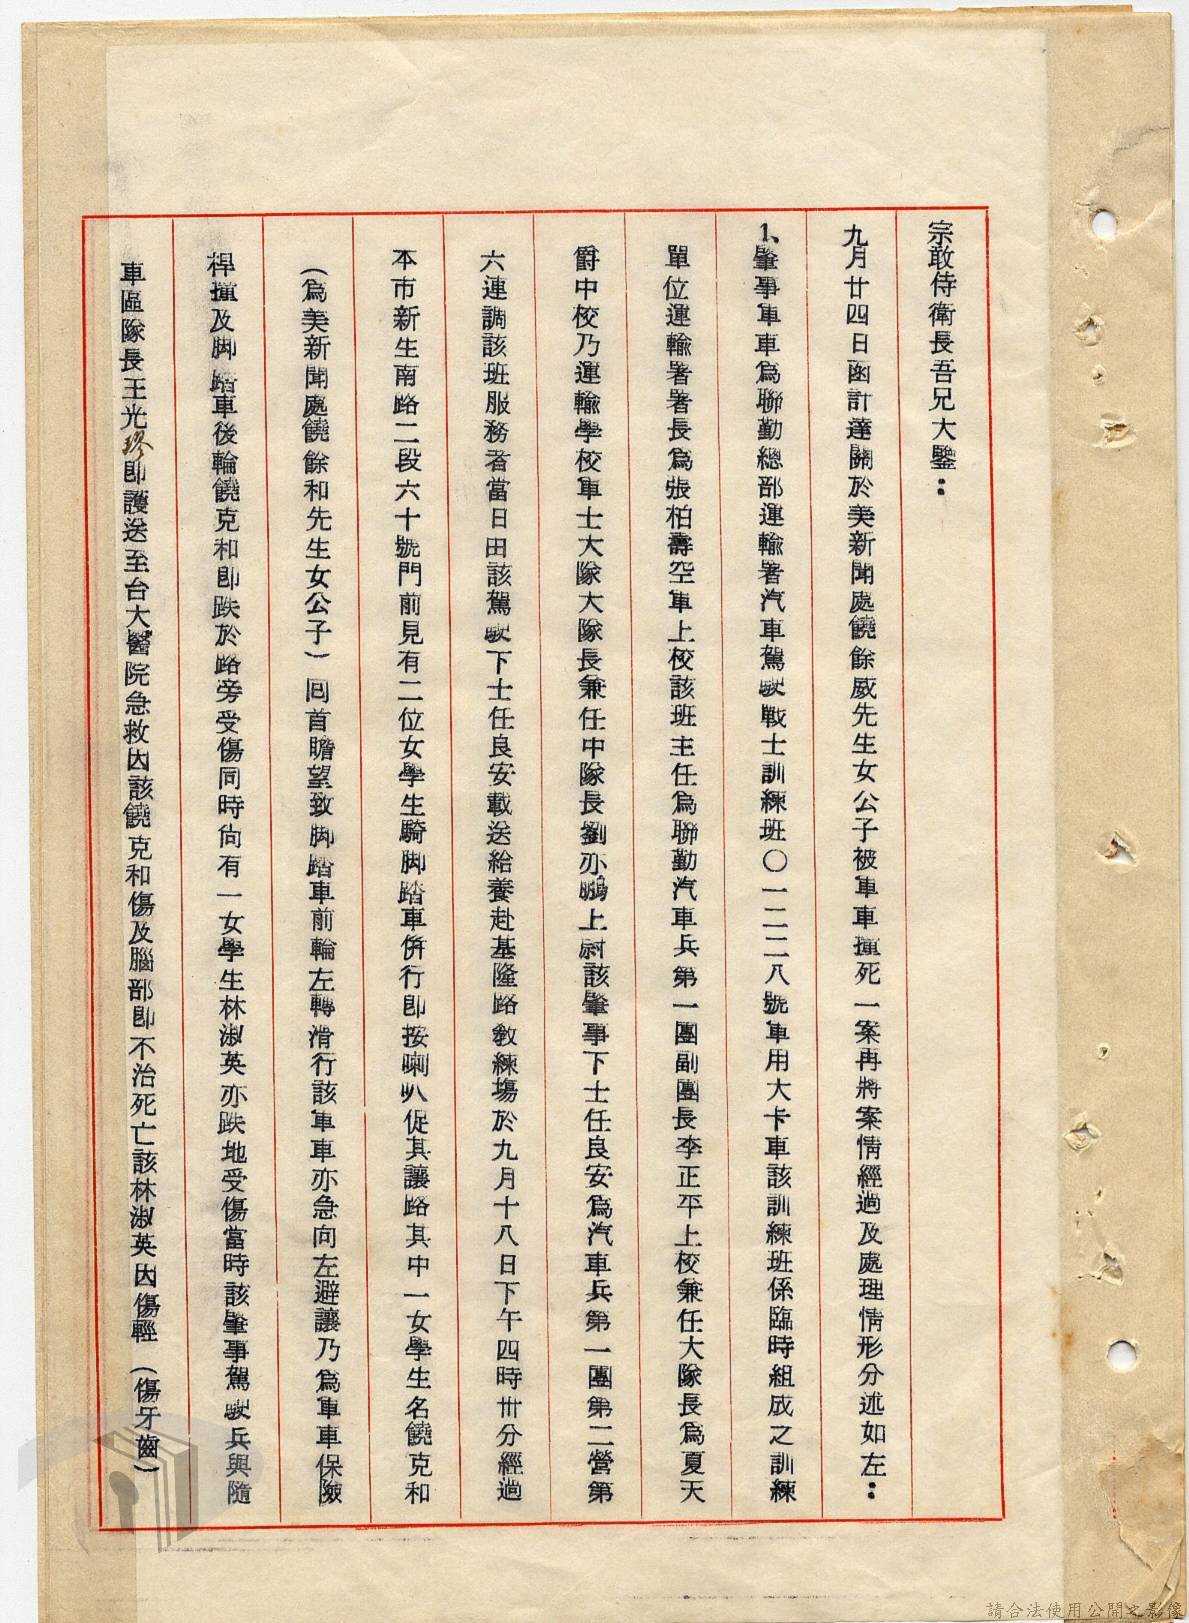 宗敢侍衛長吾兄大鑒：
九月廿四日函計達關於美新聞處饒餘威先生女公子被軍車撞死一案再將案情經過及處理情形分述如左：
1、肇事軍車為聯勤總部運輸署汽車駕駛戰士訓練班〇一二二八號軍用大卡車該訓練班係臨時組成之訓練
單位運輸署署長為張柏壽空軍上校該班主任為聯勤汽車兵第一團副團長李正平上校兼任大隊長為夏天
爵中校乃運輸學校軍士大隊大隊長兼任中隊長劉亦鵬上尉該肇事下士任良安為汽車兵第一團第二營第
六連調該班服務者當日田該駕駛下士任良安載送給養赴基隆路教練場於九月十八日下午四時卅分經過
本市新生南路二段六十號門前見有二位女學生騎脚踏車併行卽按喇叭促其讓路其中一女學生名饒克和
（為美新聞處饒餘和先生女公子）回首瞻望致脚踏車前輪左轉滑行該軍車亦急向左避讓乃為軍車保險
桿撞及脚踏車後輪饒克和卽跌於路旁受傷同時尙有一女學生林淑英亦跌地受傷當時該肇事駕駛兵與隨
車區隊長王光璆卽護送至台大醫院急救因該饒克和傷及腦部卽不治死亡該林淑英因傷輕（傷牙齒）
請合法使用公開之影像